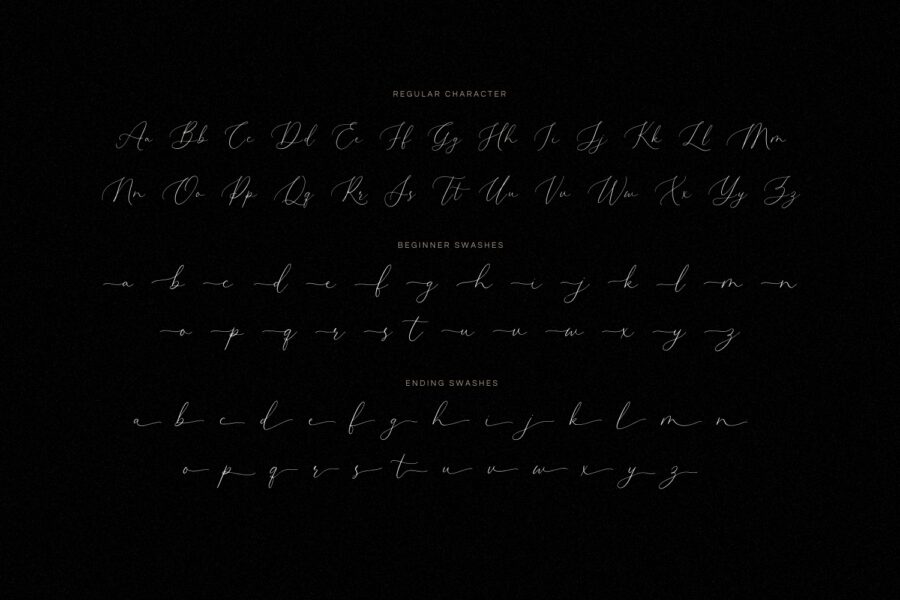 REGULAR CHARACTER
Aa Bb Cc Dd Ee Ff Gg Hh Ii Jj Kk Ll Mm
Nn Oo Pp Qq Rr Ss Tt Uu Vv Ww Xx Yy Zz
BEGINNER SWASHES
a b c d e f g h i j k l m n
o p q r s t u v w x y z
ENDING SWASHES
a b c d e f g h i j k l m n
o p q r s t u v w x y z